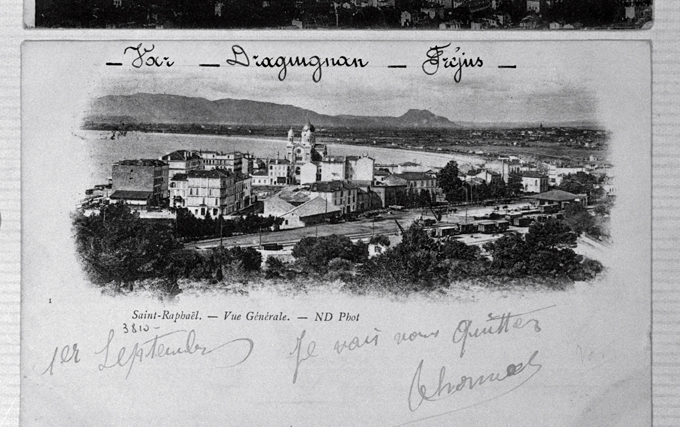 – Var – Draguignan – Fréjus –
1
Saint-Raphaël. — Vue Générale. — ND Phot
3810-
1er Septembre Je vais vous quitter
Thomas